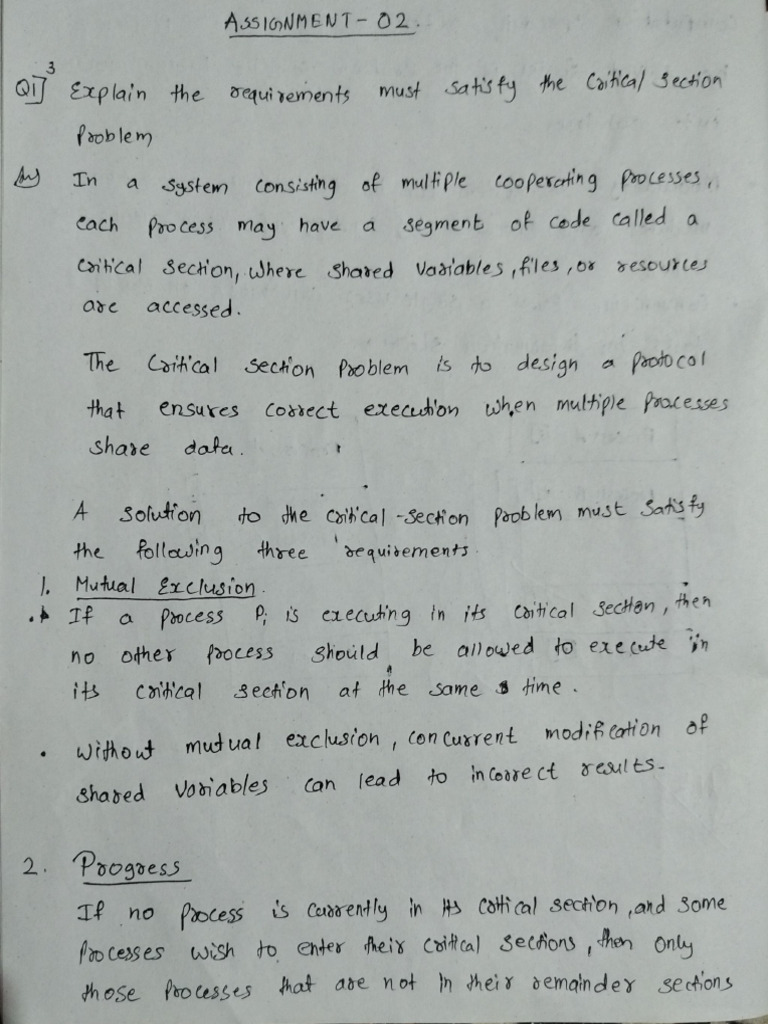 ASSIGNMENT - 02.
Q1] 3 Explain the requirements must satisfy the Critical section
Problem
Ans In a system consisting of multiple cooperating processes,
each process may have a segment of code called a
critical section, where shared variables, files, or resources
are accessed.
The Critical section problem is to design a protocol
that ensures correct execution when multiple processes
share data.
A solution to the critical-section problem must satisfy
the following three requirements.
1. Mutual Exclusion.
• If a process Pi is executing in its critical section, then
no other process should be allowed to execute in
its critical section at the same time.
• without mutual exclusion, concurrent modification of
shared variables can lead to incorrect results.
2. Progress
If no process is currently in its critical section, and some
processes wish to enter their critical sections, then only
those processes that are not in their remainder sections